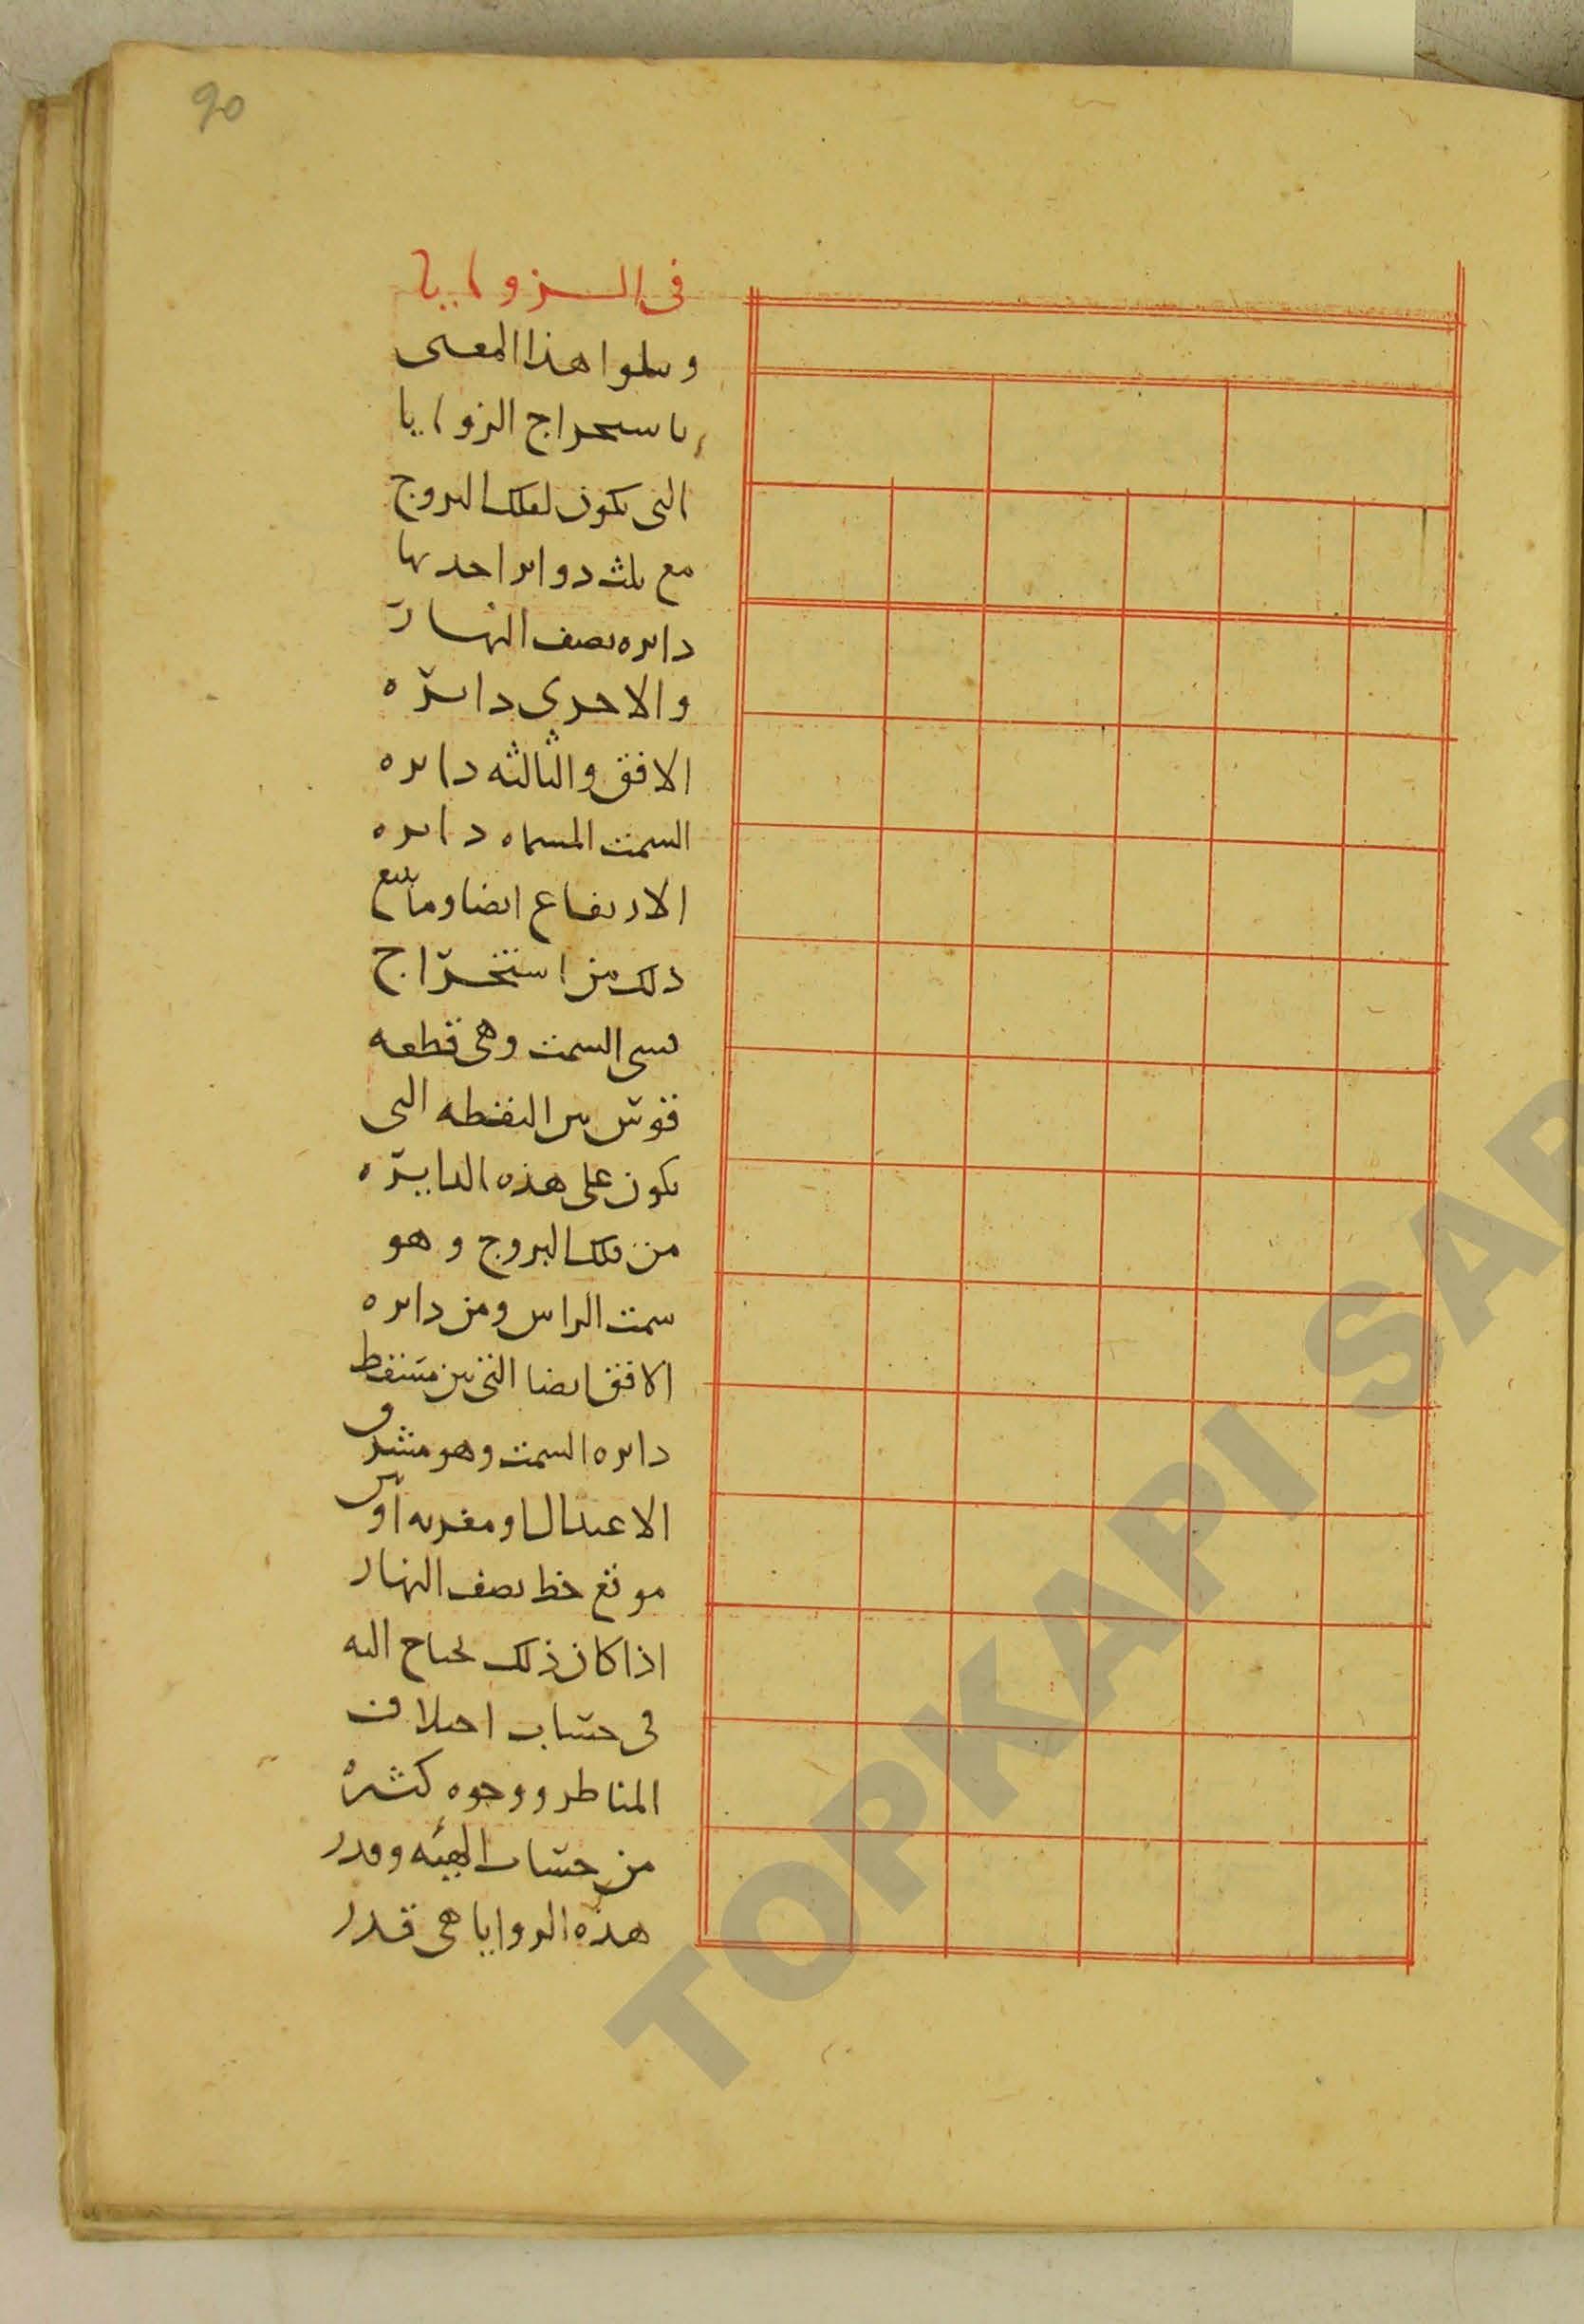 90
في الزوايا
ويتلوا هذا المعنى
باستخراج الزوايا
التي تكون لفلك البروج
مع ثلث دوائر احديها
دائره نصف النهار
والاخرى دائره
الافق والثالثه دائره
السمت المسماه دائره
الارتفاع ايضا وما يتبع
ذلك من استخراج
قسي السمت وهي قطعه
قوس بين النقطه التي
تكون على هذه الدايره
من فلك البروج وهو
سمت الراس ومن دائره
الافق ايضا التي بين مسقط
دائره السمت وهو مشرق
الاعتدال او مغربه او بين
موقع خط نصف النهار
اذا كان ذلك يحتاج اليه
في حساب اختلاف
المناظر ووجوه كثيرة
من حساب الهيئه وقدر
هذه الزوايا هي قدر
TOPKAPI SAR